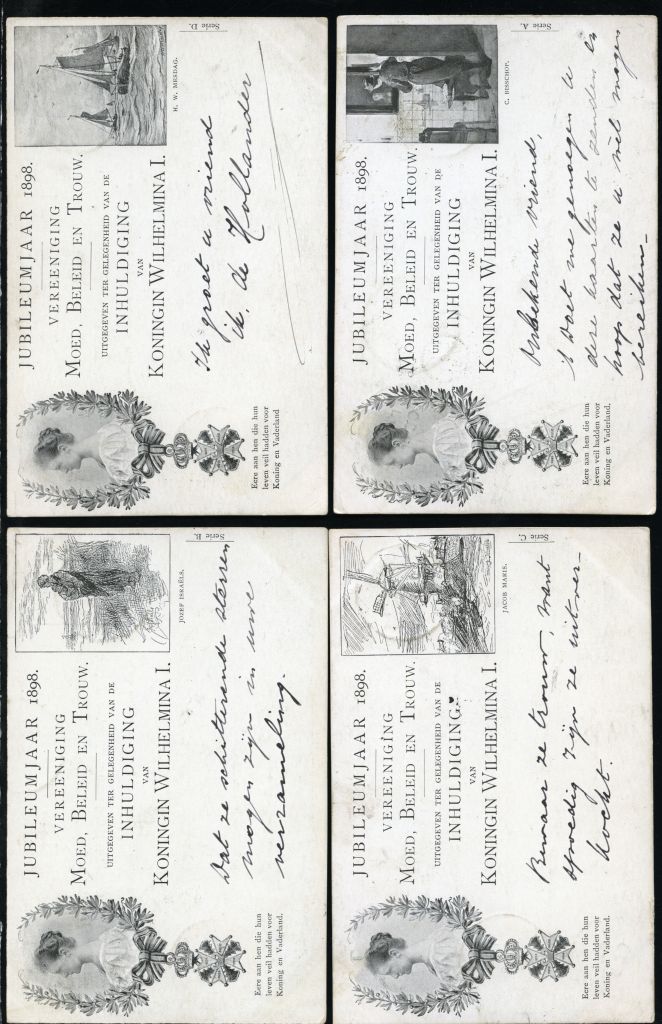 Serie D.
H. W. MESDAG.
JUBILEUMJAAR 1898.
VEREENIGING
MOED, BELEID EN TROUW.
UITGEGEVEN TER GELEGENHEID VAN DE
INHULDIGING
VAN
KONINGIN WILHELMINA I.
Ik groet u vriend
ik, de Hollander
Eere aan hen die hun
leven veil hadden voor
Koning en Vaderland
Serie A.
C. BISSCHOP.
JUBILEUMJAAR 1898.
VEREENIGING
MOED, BELEID EN TROUW.
UITGEGEVEN TER GELEGENHEID VAN DE
INHULDIGING
VAN
KONINGIN WILHELMINA I.
Onbekende vriend,
't Doet me genoegen u
deze kaarten te zenden en
hoop dat ze u wèl mogen
bereiken.
Eere aan hen die hun
leven veil hadden voor
Koning en Vaderland.
Serie B.
JOZEF ISRAËLS.
JUBILEUMJAAR 1898.
VEREENIGING
MOED, BELEID EN TROUW.
UITGEGEVEN TER GELEGENHEID VAN DE
INHULDIGING
VAN
KONINGIN WILHELMINA I.
Dat ze schitterende sterren
mogen zijn in uwe
verzameling.
Eere aan hen die hun
leven veil hadden voor
Koning en Vaderland.
Serie C.
JACOB MARIS.
JUBILEUMJAAR 1898.
VEREENIGING
MOED, BELEID EN TROUW.
UITGEGEVEN TER GELEGENHEID VAN DE
INHULDIGING
VAN
KONINGIN WILHELMINA I.
Bewaar ze trouw, want
spoedig zijn ze uitver-
kocht.
Eere aan hen die hun
leven veil hadden voor
Koning en Vaderland.